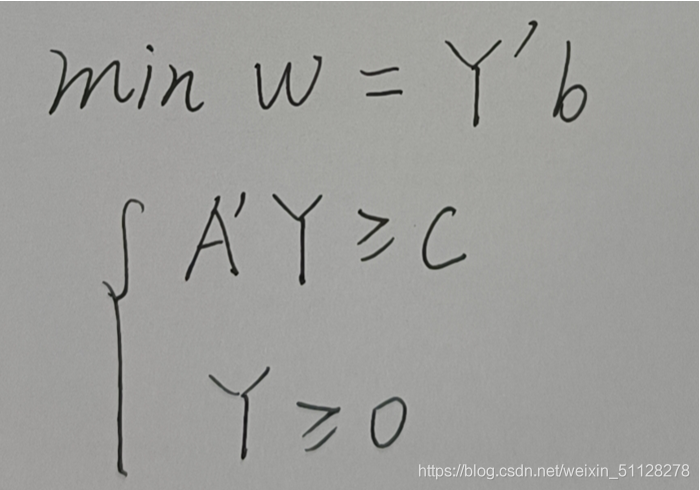 min w = Y'b
A'Y ≥ C
Y ≥ 0
https://blog.csdn.net/weixin_51128278